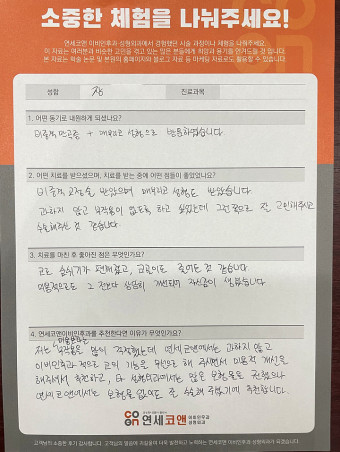 소중한 체험을 나눠주세요!
연세코앤 이비인후과 성형외과에서 경험했던 시술 과정이나 체험을 나눠주세요.
이 자료는 여러분과 비슷한 고민을 겪고 있는 많은 분들에게 희망과 용기를 안겨드릴 것 입니다.
본 자료는 학술 논문 및 본원의 홈페이지와 블로그 자료 등 마케팅 자료로도 활용될 수 있습니다.
성함
진료과목
1. 어떤 동기로 내원하게 되셨나요?
비중격만곡증 + 매부리코 성형으로 방문하였습니다
2. 어떤 치료를 받으셨으며, 치료를 받는 중에 어떤 점들이 좋았었나요?
비중격 교정술 받았으며 매부리코 성형도 받았습니다.
과하지 않고 부작용이 없도록 하고 싶었는데 그런쪽으로 잘 고민해주시고
수술해주신 것 같습니다.
3. 치료를 마친 후 좋아진 점은 무엇인가요?
코로 숨쉬기가 편해졌고, 코골이도 줄어든 것 같습니다
미용적으로도 그 전보다 상당히 개선되어 자신감이 생겼습니다
4. 연세코앤이비인후과를 추천한다면 이유가 무엇인가요?
저는 부작용을 많이 걱정했는데 연세코앤에서는 과하지 않고
이비인후과적으로 코의 기능을 우선으로 해 주시면서 미용적 개선을
해주셔서 추천하고, 타 성형외과에서는 많은 보형물을 권했으나
연세코앤에서는 보형물 없이도 잘 수술 해주셨기에 추천합니다.
연세코앤 이비인후과 성형외과
고객님의 소중한 후기 감사합니다. 고객님의 말씀에 귀기울여 더욱 발전하고 노력하는 연세코앤 이비인후과 성형외과가 되겠습니다.